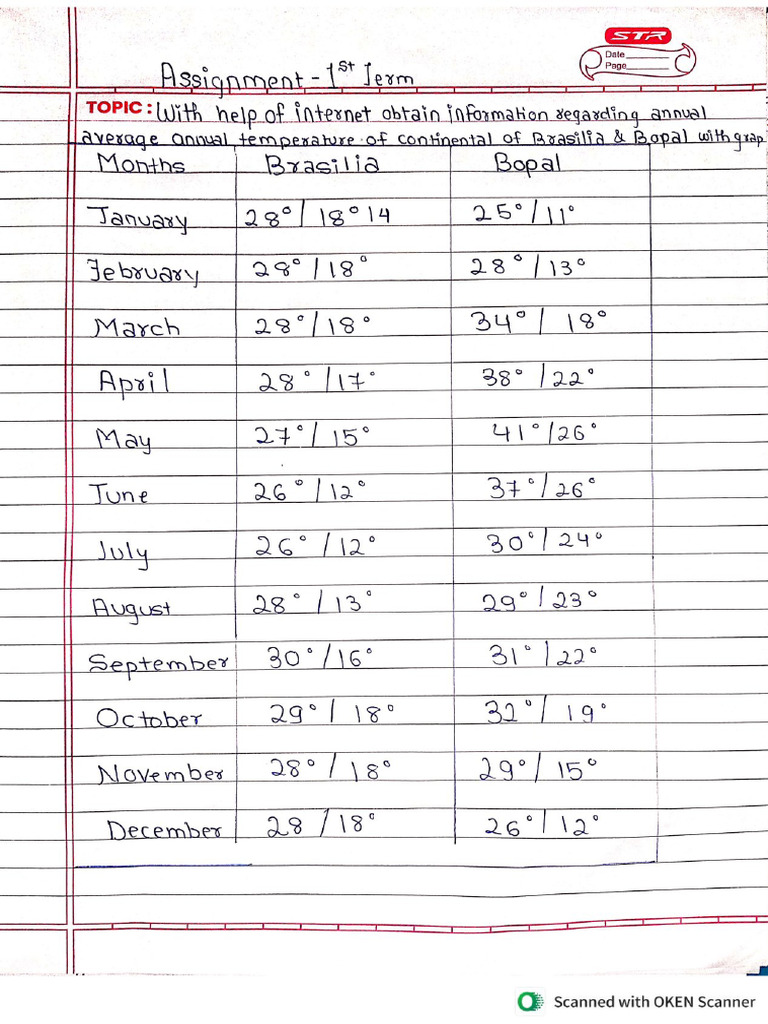 STR
Date
Page
Assignment - 1st Term
TOPIC: With help of internet obtain information regarding annual
average annual temperature of continental of Brasilia & Bopal with grap
Months Brasilia Bopal
January 28°/18°14 25°/11°
February 28°/18° 28°/13°
March 28°/18° 34°/18°
April 28°/17° 38°/22°
May 27°/15° 41°/26°
June 26°/12° 37°/26°
July 26°/12° 30°/24°
August 28°/13° 29°/23°
September 30°/16° 31°/22°
October 29°/18° 32°/19°
November 28°/18° 29°/15°
December 28/18° 26°/12°
Scanned with OKEN Scanner